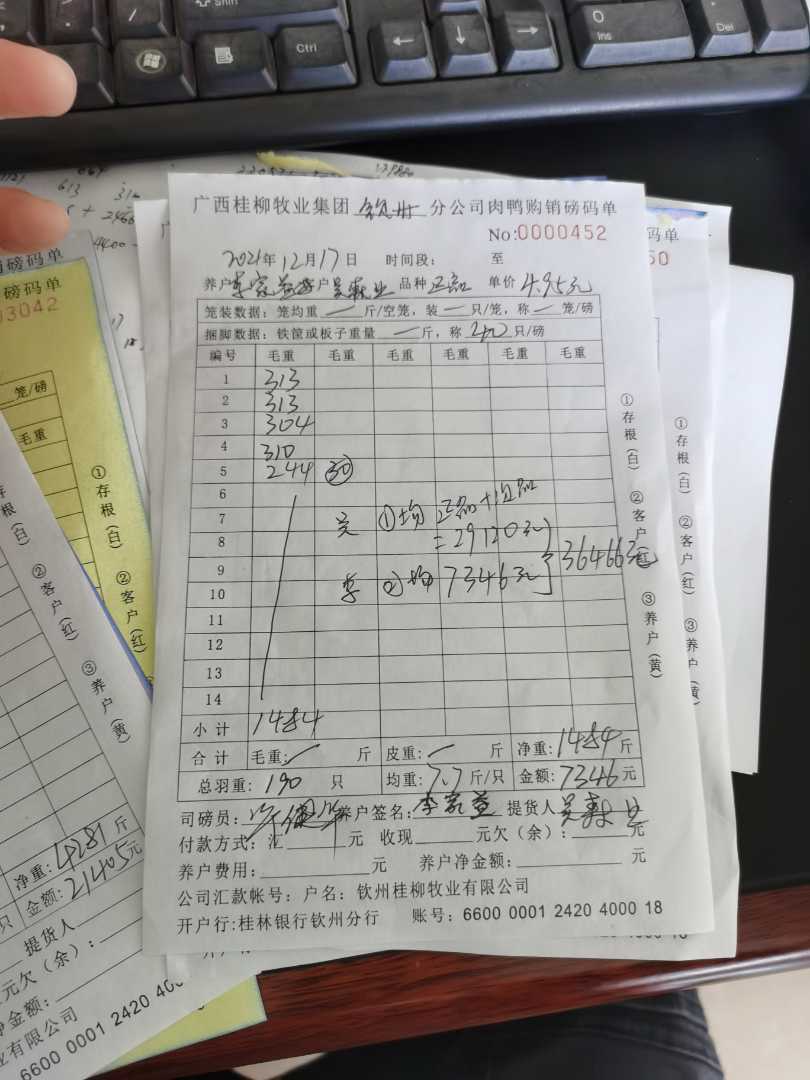 Shift
Ctrl
0
Ins
Del
广西桂柳牧业集团 钦州 分公司肉鸭购销磅码单
No:0000452
2021年12月17日 时间段: 至
养户李家益客户吴森业 品种 正品 单价 4.95元
笼装数据: 笼均重 — 斤/空笼, 装 — 只/笼, 称 — 笼/磅
捆脚数据: 铁筐或板子重量 — 斤, 称 40 只/磅
编号 毛重 毛重 毛重 毛重 毛重
1 313
2 313
3 304
4 310
5 244 30
6
7 吴 ①均 正品+次品
8 =29120元
9 36466元
10 李 ②均 7346元
11
12
13
14
小计 1484
合计 毛重: — 斤 皮重: — 斤 净重: 1484 斤
总羽重: 190 只 均重: 7.7 斤/只 金额: 7346 元
司磅员: 养户签名: 李家益 提货人
付款方式: 汇 元 收现 元欠(余): 元
养户费用: 元 养户净金额: 元
公司汇款帐号: 户名: 钦州桂柳牧业有限公司
开户行:桂林银行钦州分行 账号: 6600 0001 2420 4000 18
①存根(白) ②客户(红) ③养户(黄)
磅码单
50
①存根(白) ②客户(红) ③养户(黄)
磅码单
磅码单
03042
笼/磅
毛重
①存根(白) ②客户(红)
存根(白) ②客户(红) ③养户(黄)
净重: 4281 斤
只 金额: 21405元
提货人
元欠(余):
净金额:
业有限公司
6600 0001 2420 400